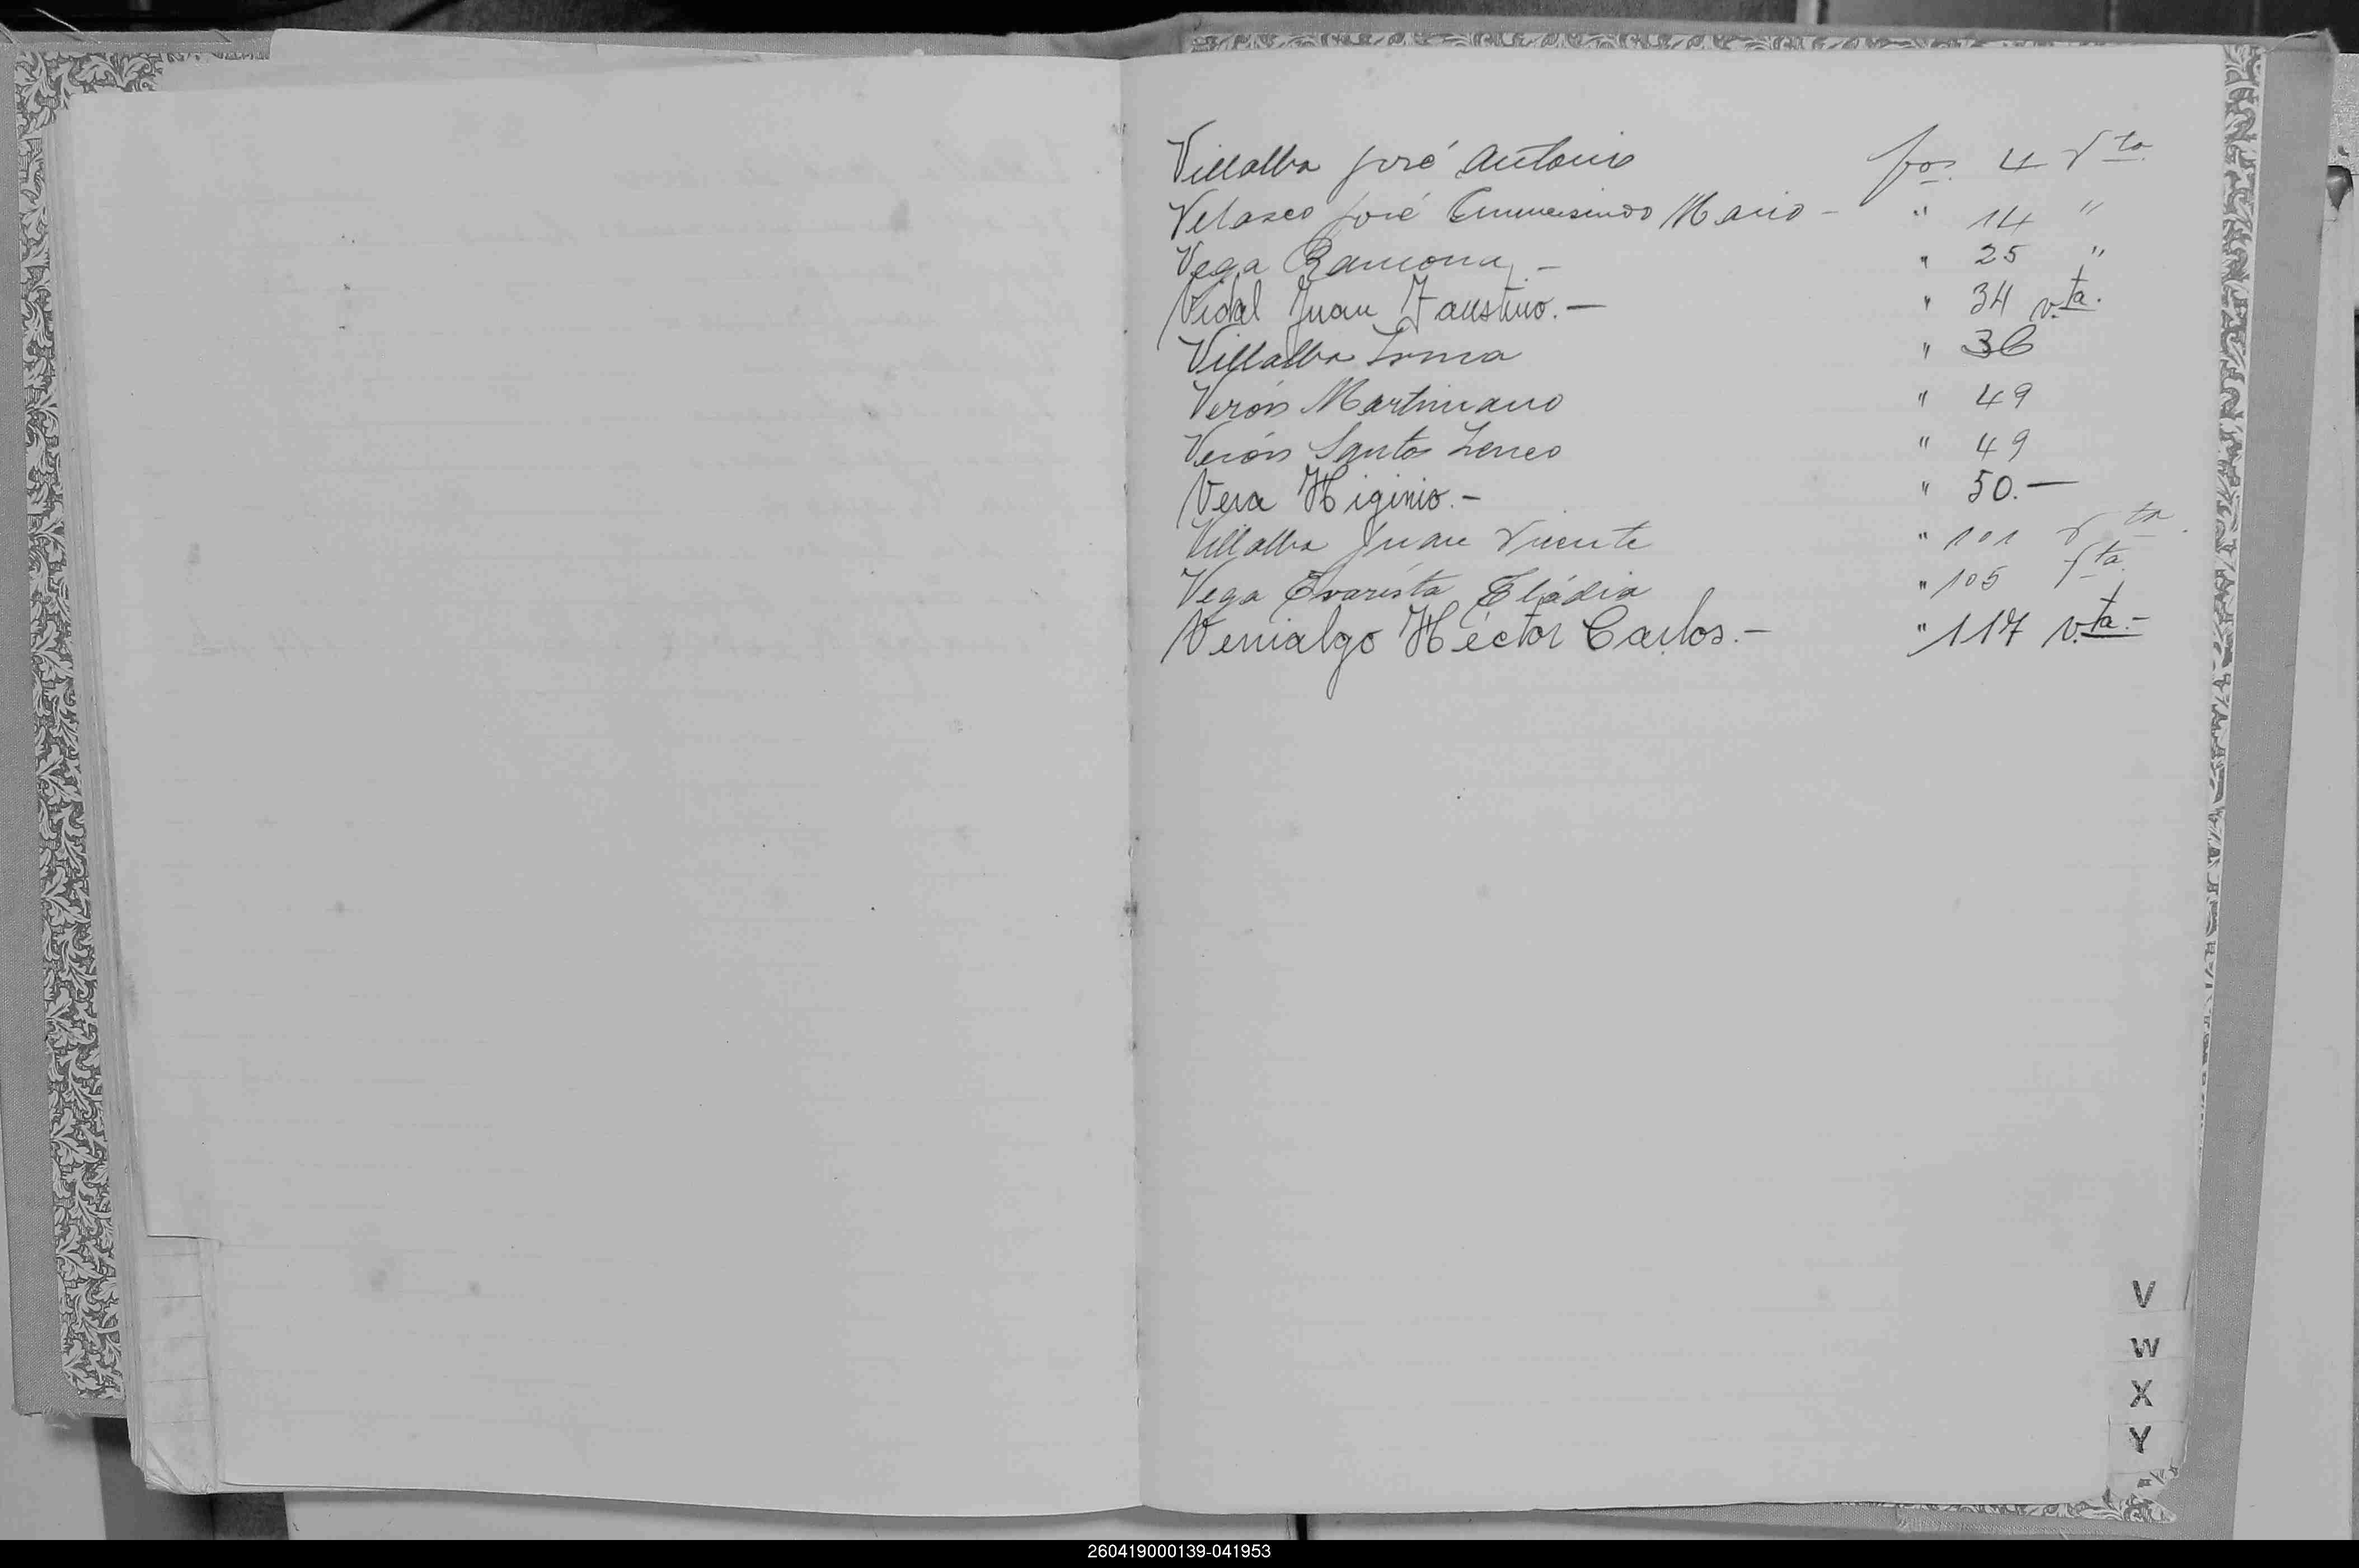 Villalba José Antonio fos. 4 Vta.
Velasco José Gumersindo Mario - " 14 "
Vega Ramona. - " 25 "
Vidal Juan Faustino. - " 34 v.ta.
Villalba Irma " 36
Verón Martiniano " 49
Verón Santos " 49
Vera Higinio. - " 50. -
Villalba Juan Vicente " 101 Vta.
Vega Evarista Eládia " 105 Vta.
Venialgo Héctor Carlos. - " 117 v.ta. -
V
W
X
Y
260419000139-041953